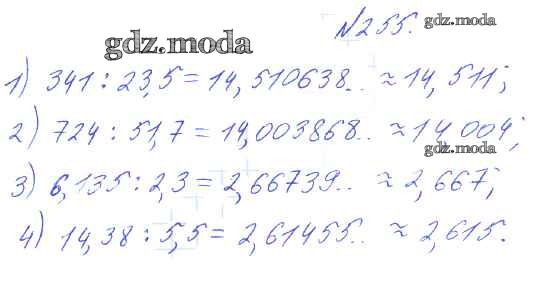 №255. gdz.moda
gdz.moda
1) 341 : 23,5 = 14,510638.. ≈ 14,511;
2) 724 : 51,7 = 14,003868.. ≈ 14 004;
gdz.moda
3) 6,135 : 2,3 = 2,66739.. ≈ 2,667;
4) 14,38 : 5,5 = 2,61455.. ≈ 2,615.